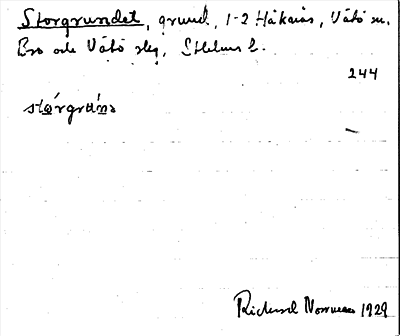 Storgrundet, grund, 1-2 Håkanäs, Vätö sn.
Bro och Vätö slg, Sthlms l.
244
stǫ́rgrúns
Rickard 1929